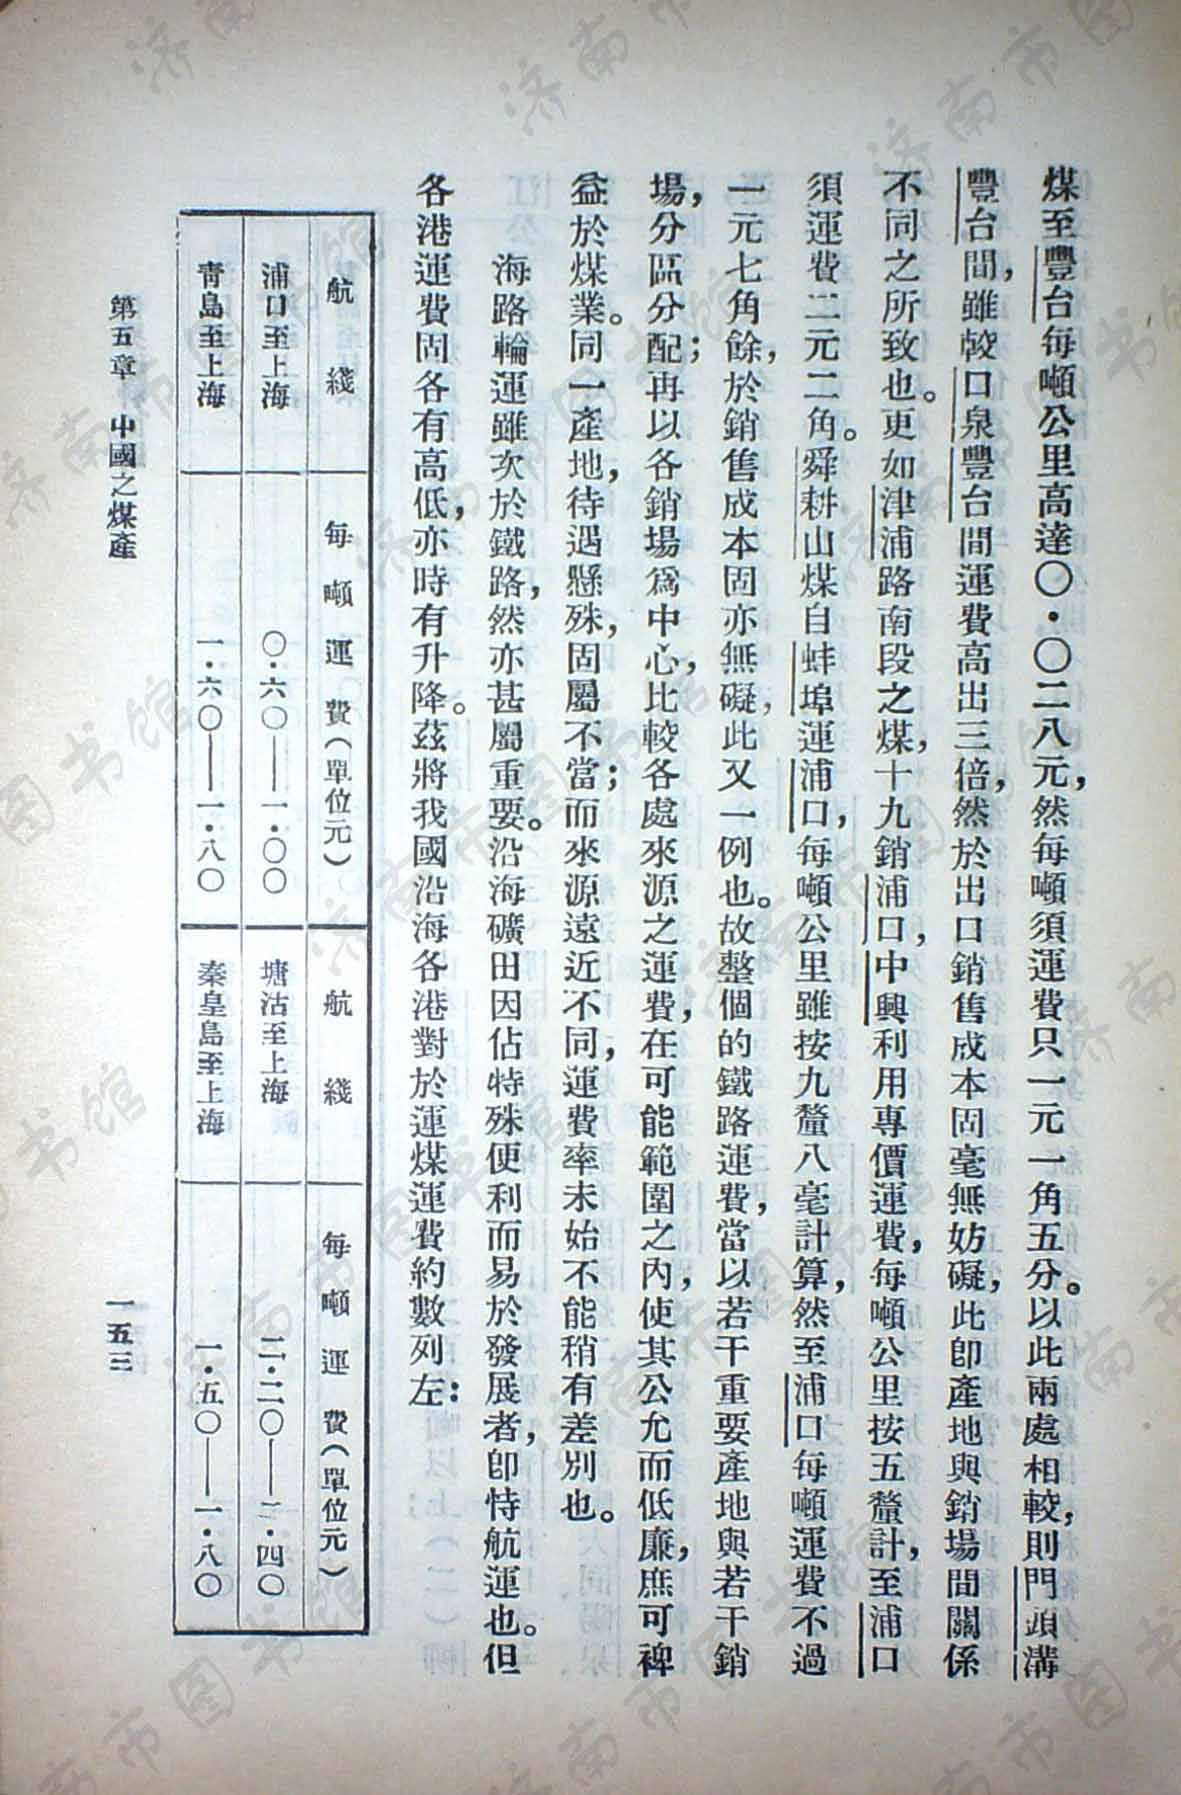 煤至豐台每噸公里高達〇·〇二八元，然每噸須運費只一元一角五分。以此兩處相較，則門頭溝
豐台間，雖較口泉豐台間運費高出三倍，然於出口銷售成本固毫無妨礙，此卽產地與銷場間關係
不同之所致也。更如津浦路南段之煤，十九銷浦口，中興利用專價運費，每噸公里按五釐計，至浦口
須運費二元二角。舜耕山煤自蚌埠運浦口，每噸公里雖按九釐八毫計算，然至浦口每噸運費不過
一元七角餘，於銷售成本固亦無礙，此又一例也。故整個的鐵路運費，當以若干重要產地與若干銷
場，分區分配；再以各銷場爲中心，比較各處來源之運費，在可能範圍之內，使其公允而低廉，庶可裨
益於煤業。同一產地，待遇懸殊，固屬不當；而來源遠近不同，運費率未始不能稍有差別也。
海路輪運雖次於鐵路，然亦甚屬重要。沿海礦田因佔特殊便利而易於發展者，卽恃航運也。但
各港運費固各有高低，亦時有升降。茲將我國沿海各港對於運煤運費約數列左：
航綫 每噸運費（單位元） 航綫 每噸運費（單位元）
浦口至上海 〇·六〇——一·〇〇 塘沽至上海 二·二〇——二·四〇
靑島至上海 一·六〇——一·八〇 秦皇島至上海 一·五〇——一·八〇
第五章 中國之煤產 一五三
济南市图书馆